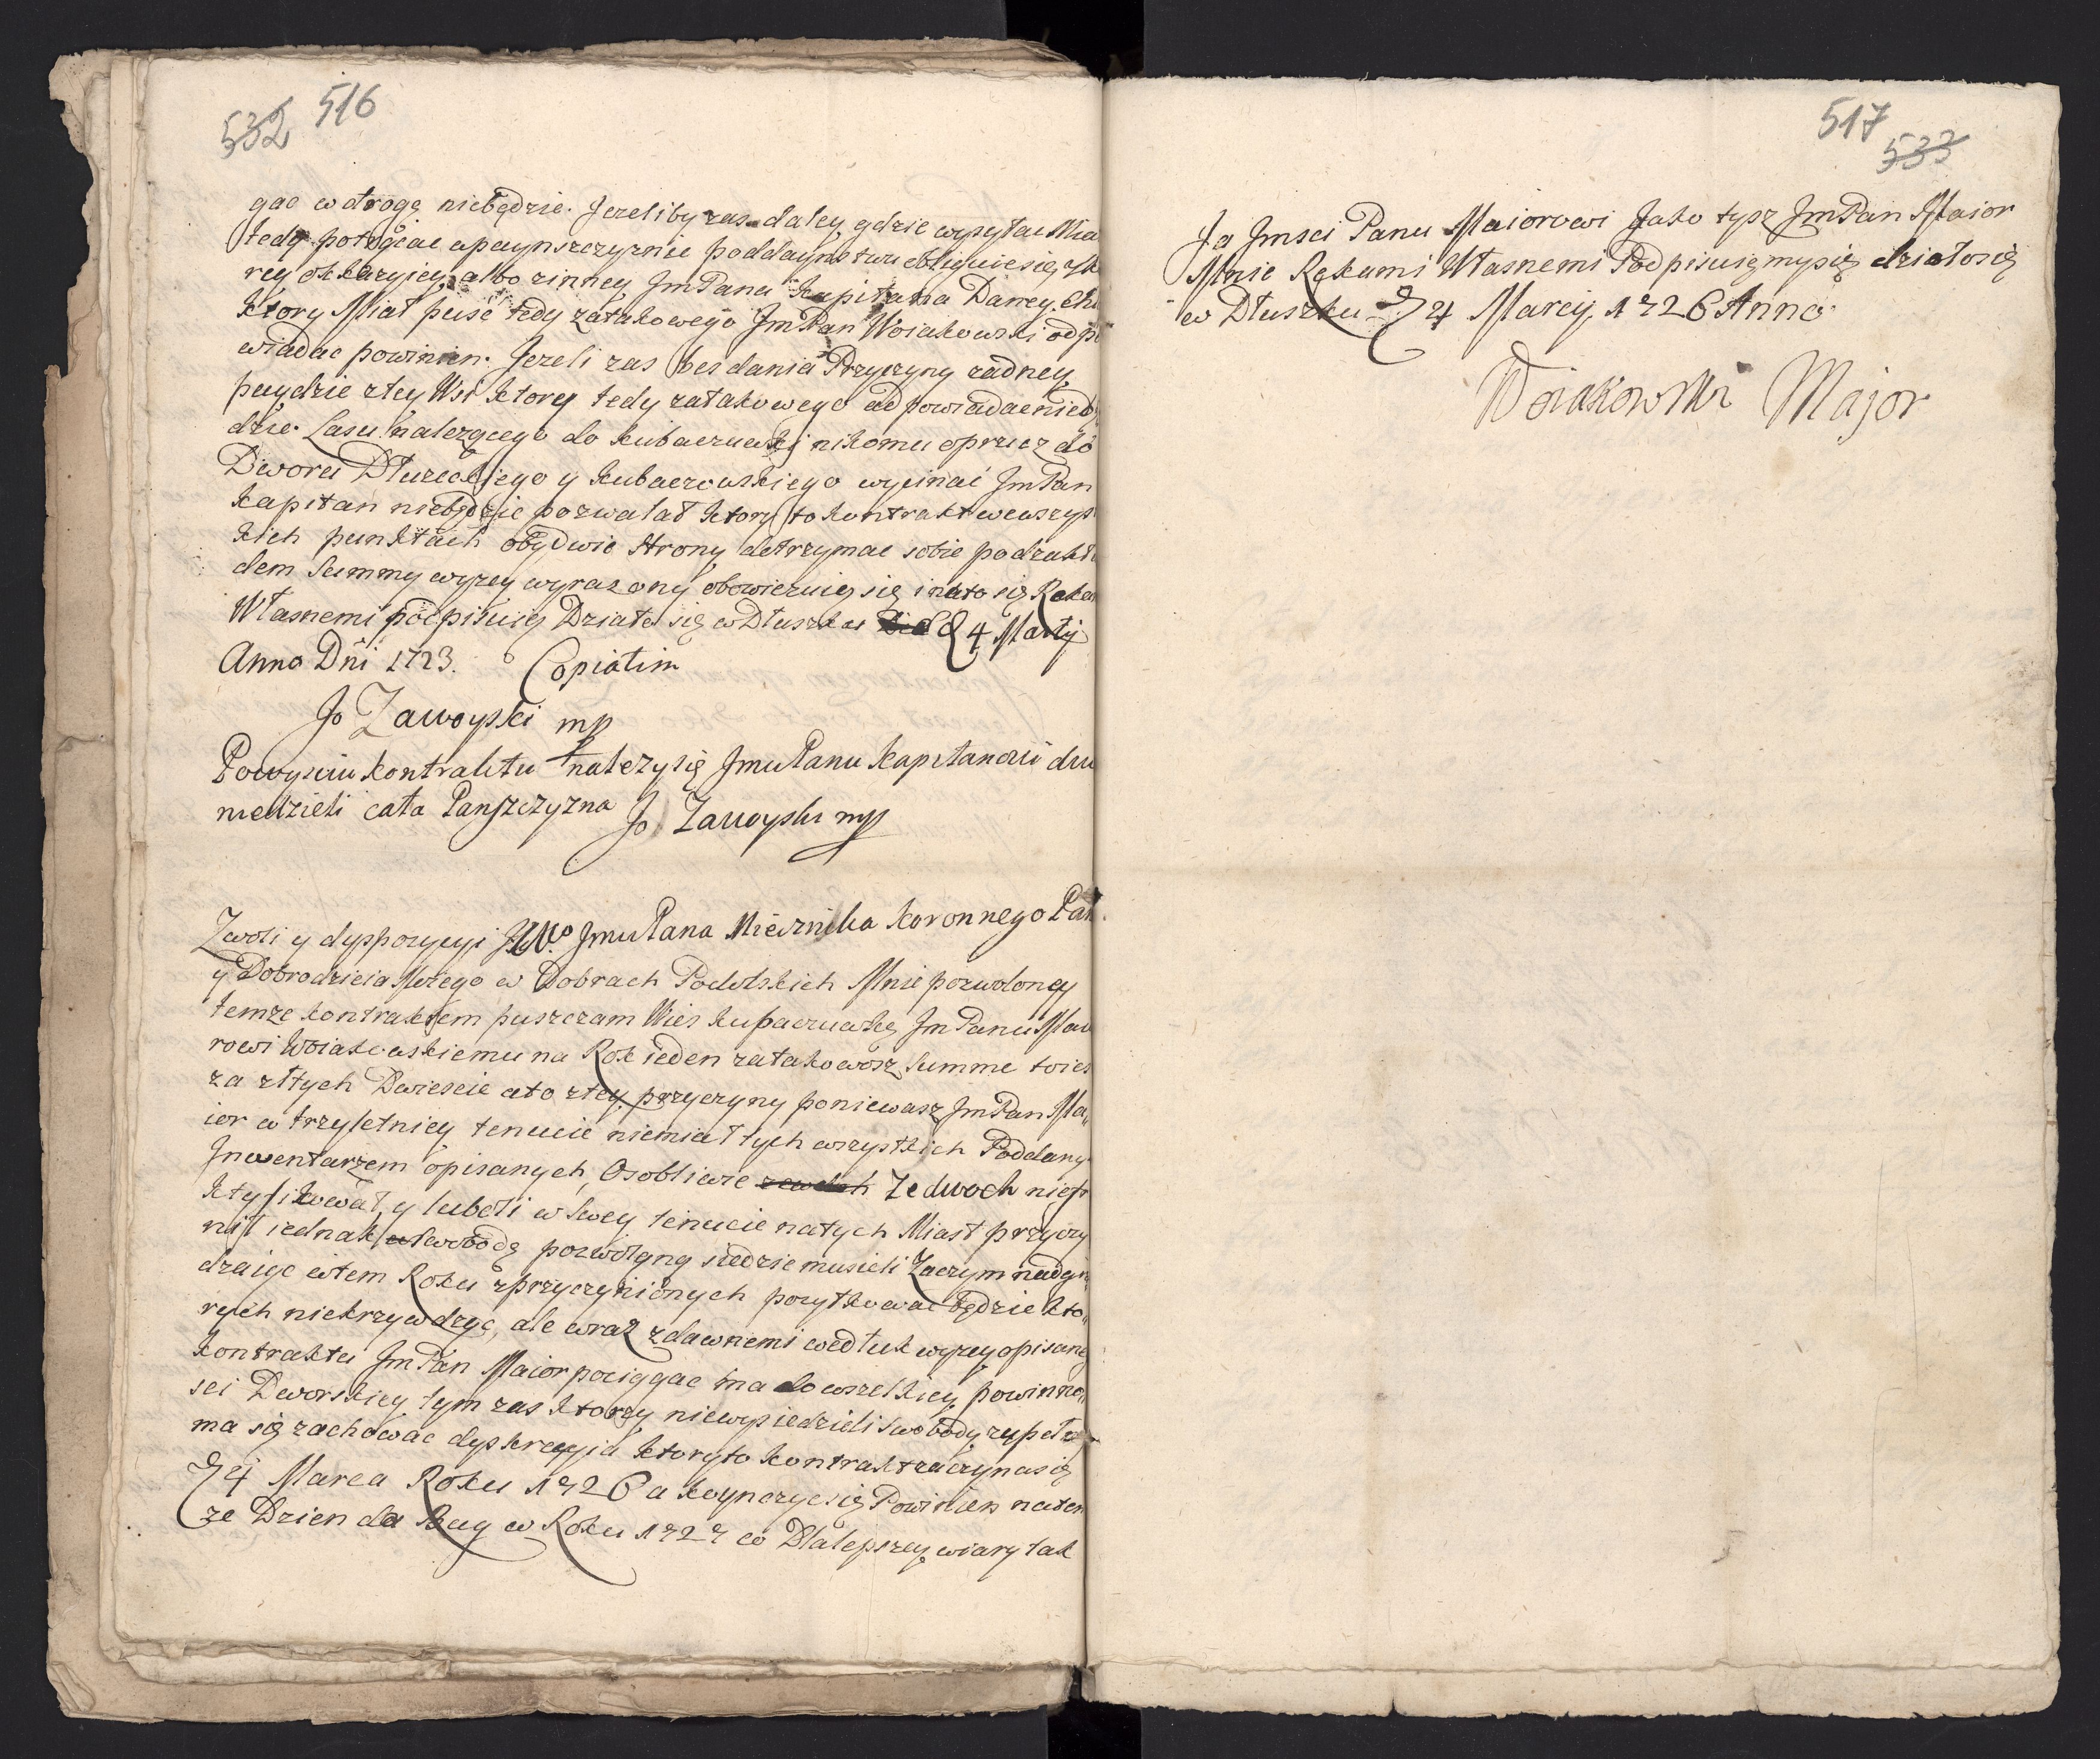 532 516
gac w drogę niebędzie. Jezeliby zas daley gdzie wysyłac Mia
tedy potrącac apaynszczyznie poddaynstwu obliguie się, zk
rey okkazyiey, albo zinney Jm Pana Kapitana Dawey
Ktory Miał puść tedy zatakowego Jm Pan Woiakowski odpo
wiadac powinien. Jezeli zas bes dania Przyczyny zadney
puydzie ztey Wsi ktorey tedy zatakowego od powiadac niebę
dzie. Lasu nalezącego do Kubaczuwki nikomu oprucz do
Dworu Dłuzeckiego y Kubaczowskiego wycinać Jm Pan
Kapitan niebędzie pozwalał ktory to kontrakt wewszys
tkich punktach obydwie strony dotrzymac sobie podzakła
dem Summy wyzey wyrazony obowiezuią się inato się Ręka
Własnemi podpisuią Działo się w Dłuszku D 4 Martij
Anno Dñi 1723. Copiatim
Jo Zawoyski mp
Powysciu kontraktu nalezy się Jmu Panu Kapitanowi dwu
niedzieli cała Panszczyzna Jo Zawoyski mp
Zwoli y dyspozycyi JWo Jmu Pana Miecznika Koronnego Pan
y Dobrodzieia Mołego w Dobrach Podolskich Mnie pozwoloney
temze kontraktem puszczam Wies Kupaczuwkę Jm Panu Maio
rowi Woiakowskiemu na Rok ieden zatakowosz Summe toies
za złtych Dwiescie ato ztey przyczyny poniewasz Jm Pan Ma„
ior w trzyletniey tenucie niemiał tych wszystkich Poddany
Inwentarzem opisanych, Osobliwie Zedwoch niefr
ktyfikował, y luboli w swey tenucie natych Miast przyczy
nił iednak Swobodę pozwoloną siedzie musieli Zaczym nadgra
dzaiąc wtem Roku zprzyczynionych pozytkowac będzie kto„
rych niekrzywdząc, ale wraz zdawnemi wedłuk wyzey opisane
kontraktu Jm Pan Maior pociągac ma do wszelkiey powinno„
sci Dworskiey tym zas ktorzy niewysiedzieli Swobody zupełne
ma się zachować dyskrecyia ktory to kontrakt zaczyna się
D 4 Marca Roku 1726 a kuynczyc się Powinien naten
ze Dzien da Bug w Roku 1727 co Dla lepszey wiary tak
517 533
Ja Jmsci Panu Maiorowi Jako tysz Jm Pan Maior
Mnie Rękami Własnemi Podpisuięmy się działo się
w Dłuszku D 4 Marcij 1726 Anno
Woiakowski Major